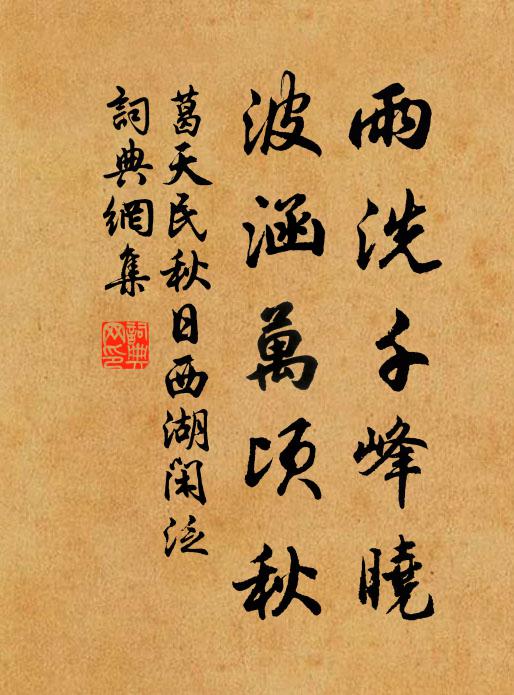 雨洗千峰曉
波涵萬頃秋
葛天民秋日西湖閑泛
詞典網集
詞典网印